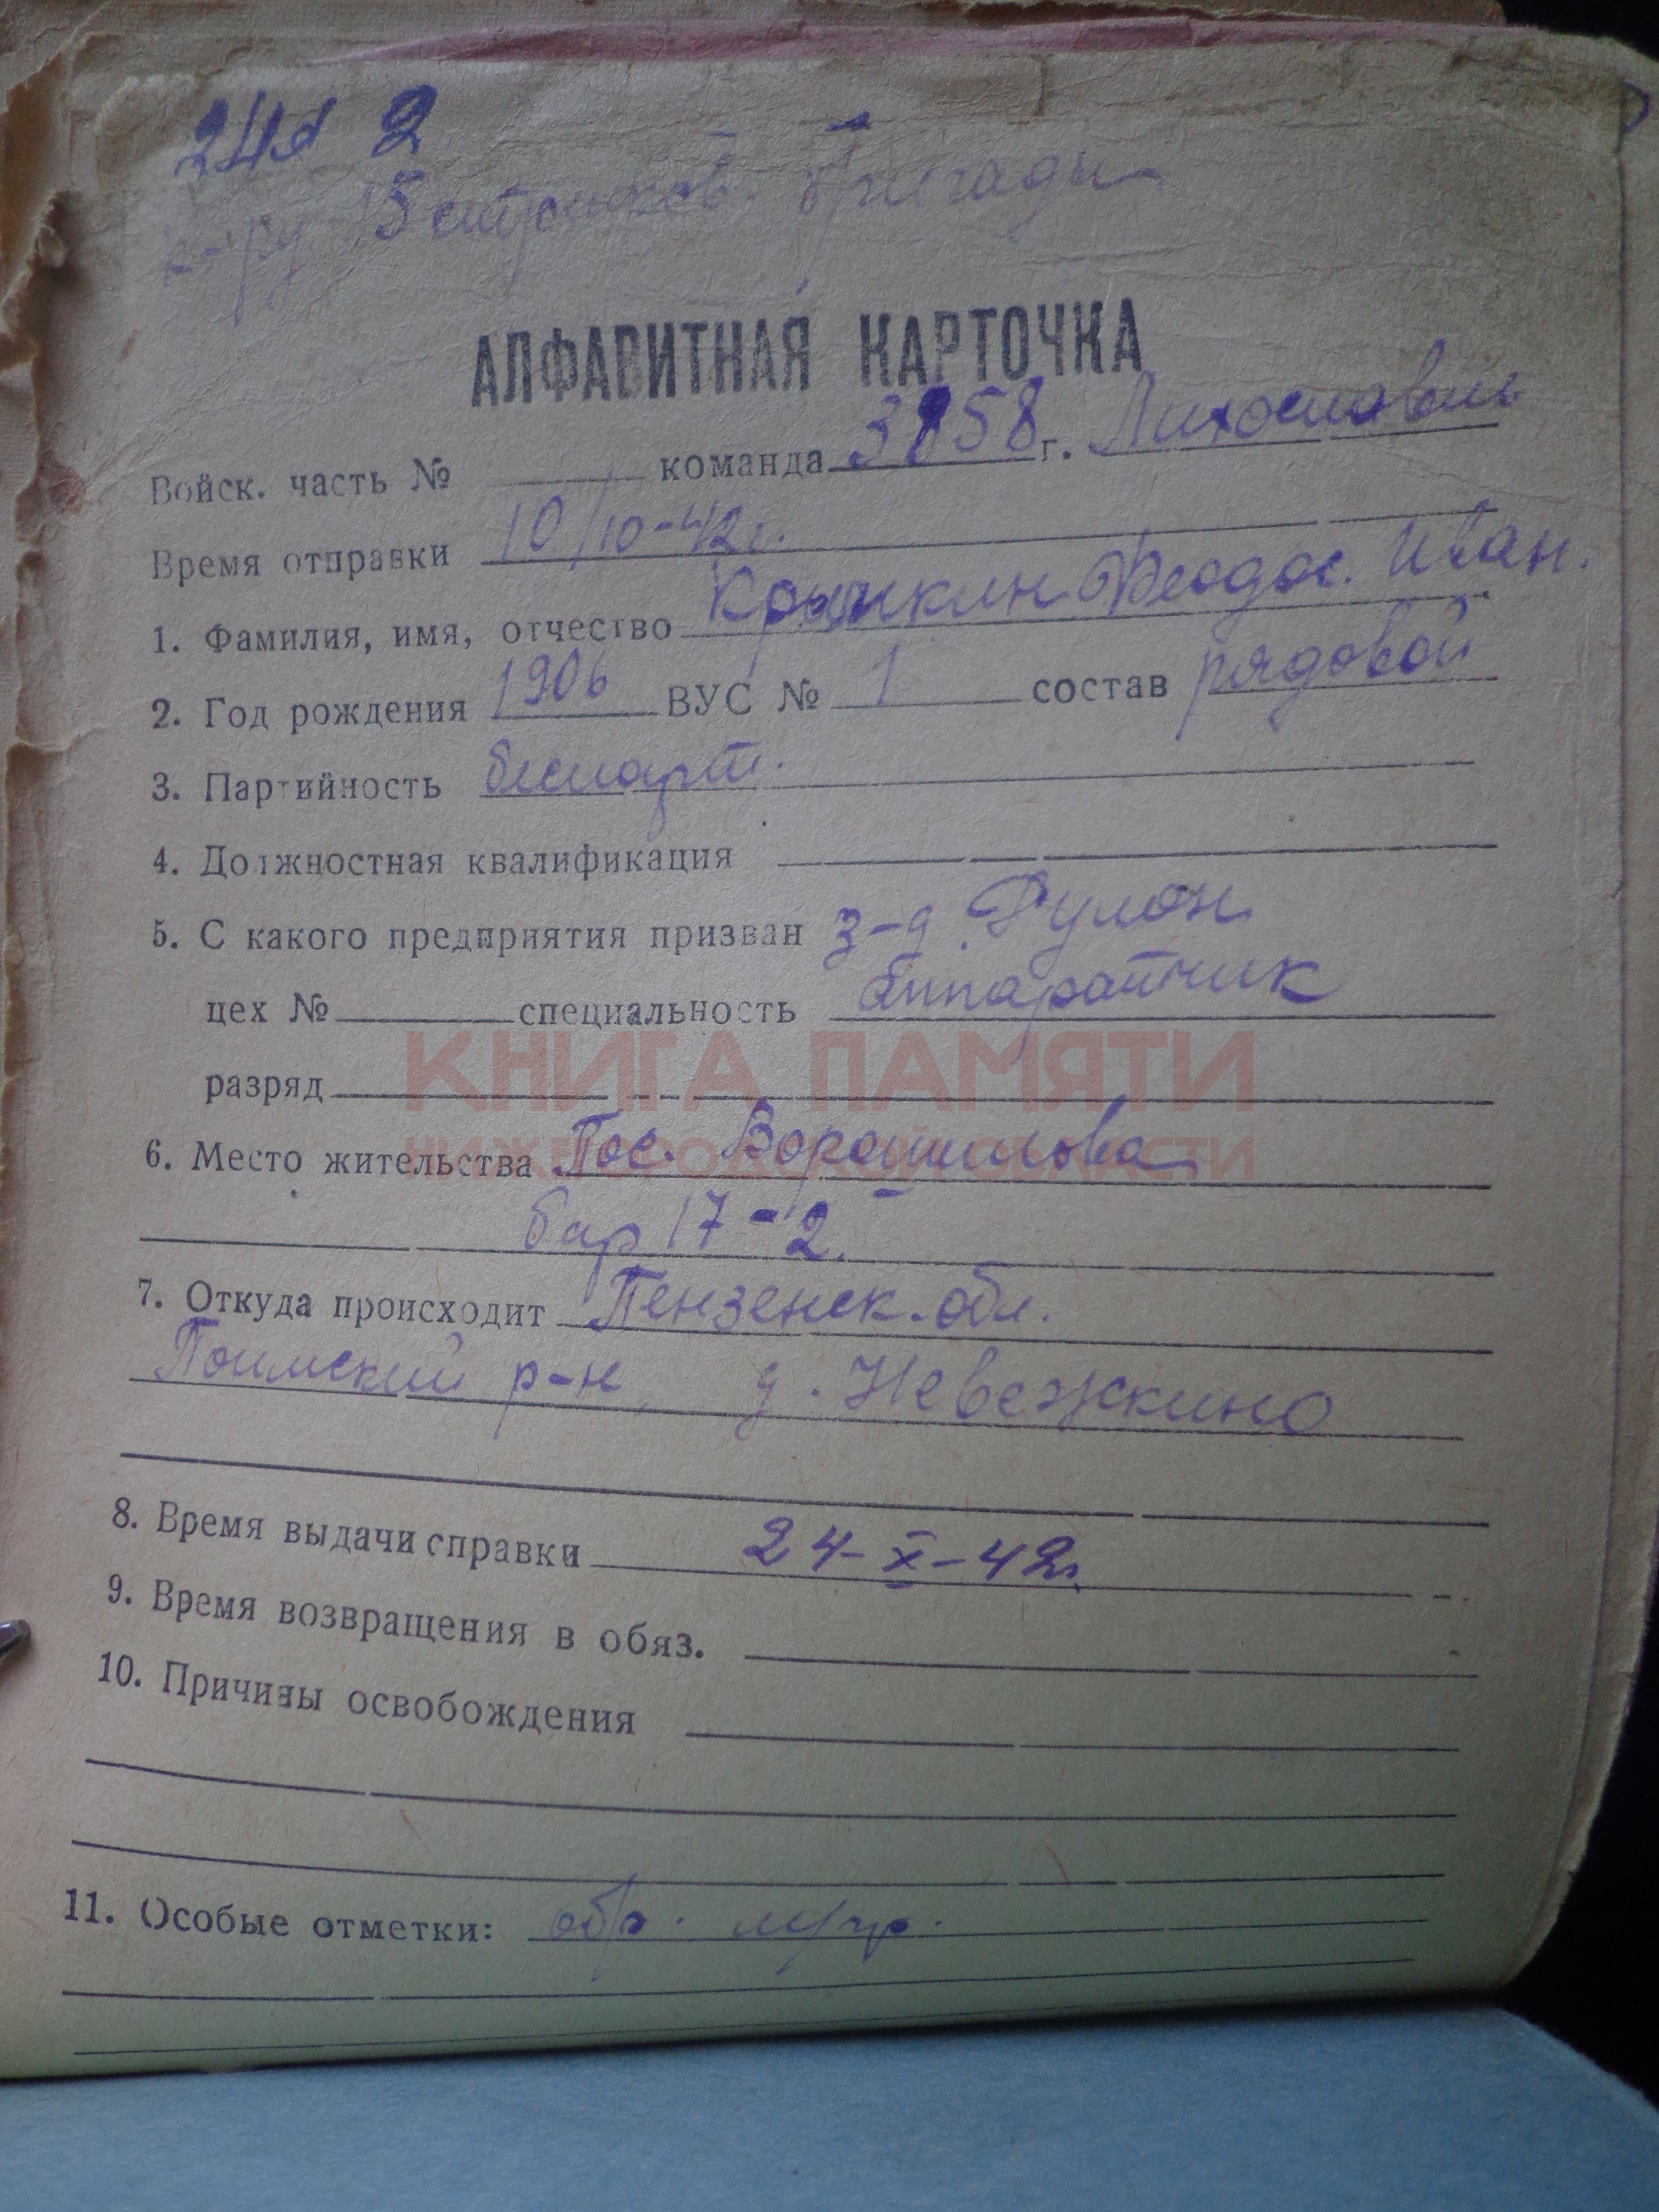 2
к-ру 5 стрелков. бригады
АЛФАВИТНАЯ КАРТОЧКА
Войск. часть № команда 3858 г. Лихославль
Время отправки 10/10-42г.
1. Фамилия, имя, отчество Феодос. Иван.
2. Год рождения 1906 ВУС № 1 состав рядовой
3. Партийность беспарт.
4. Должностная квалификация
5. С какого предприятия призван з-д. Рулон
цех № специальность Аппаратчик
разряд
КНИГА ПАМЯТИ
НИЖЕГОРОДСКОЙ ОБЛАСТИ
6. Место жительства Пос. Ворошилова
бар 17-2.
7. Откуда происходит Пензенск. обл.
Поимский р-н, д. Невежкино
8. Время выдачи справки 24-X-42г.
9. Время возвращения в обяз.
10. Причины освобождения
11. Особые отметки: обр.